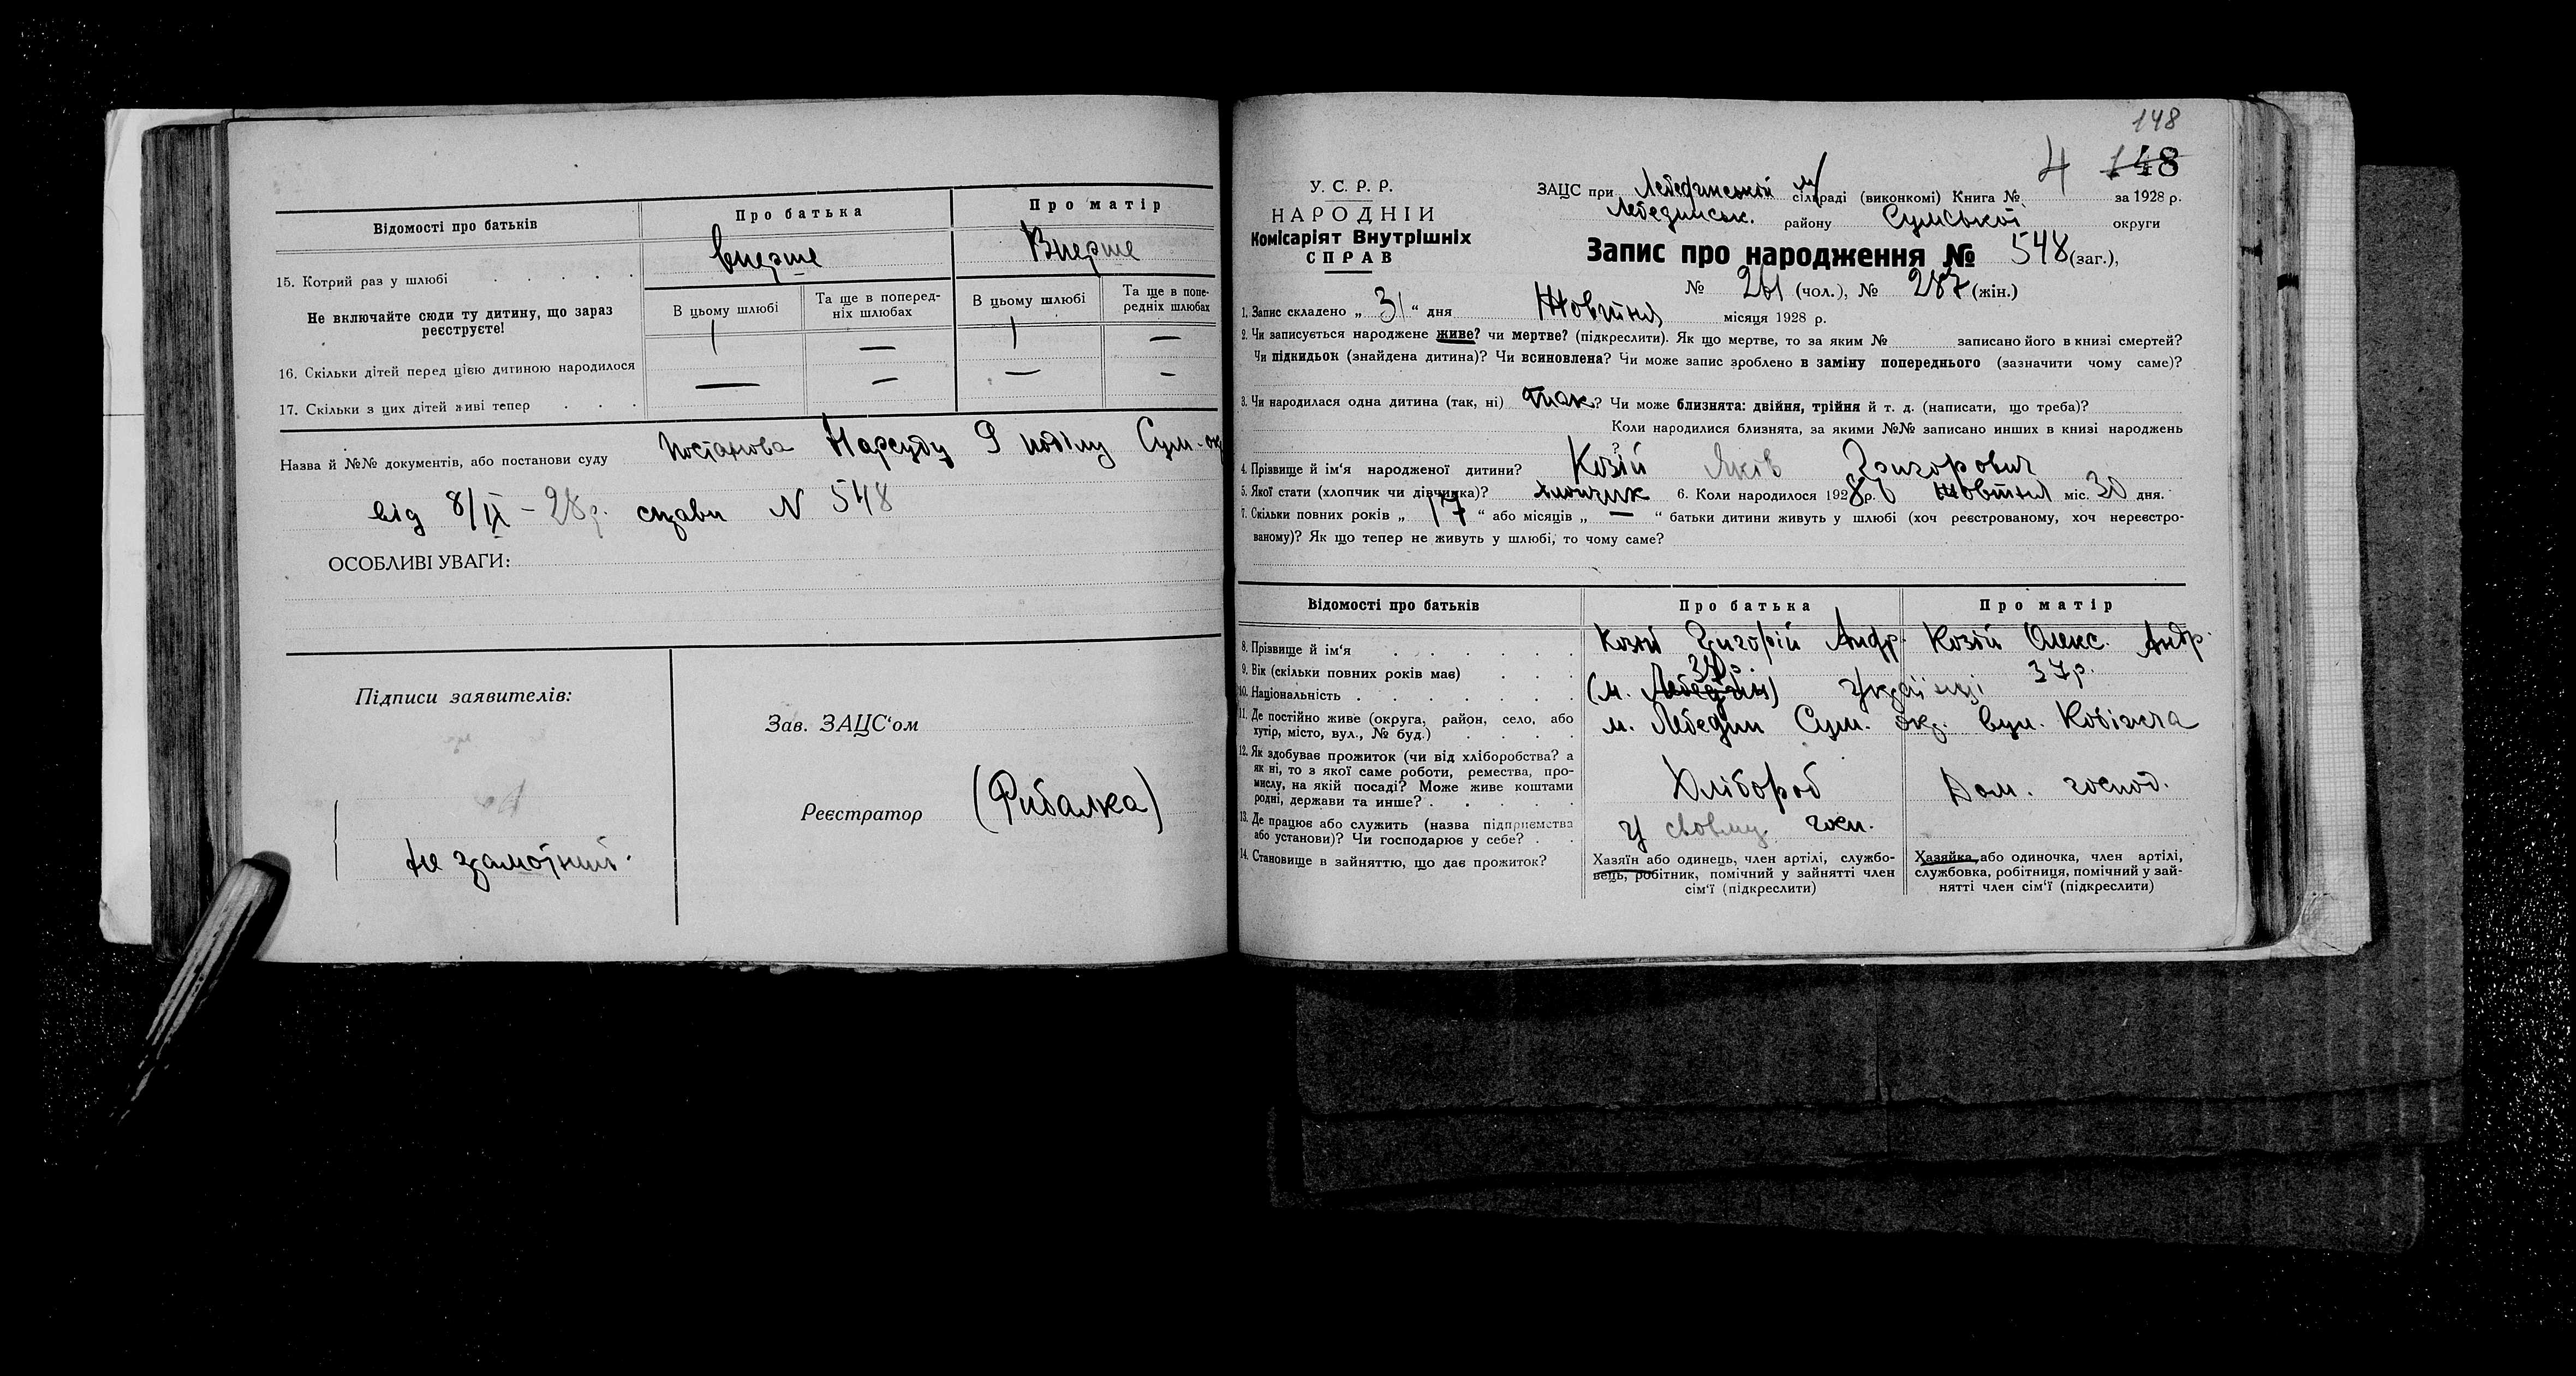 Відомості про батьків
Про батька
Про матір
15. Котрий раз у шлюбі
вперше
Вперше
Не включайте сюди ту дитину, що зараз
реєструєте!
В цьому шлюбі
Та ще в поперед-
ніх шлюбах
В цьому шлюбі
Та ще в попе-
редніх шлюбах
16. Скільки дітей перед цією дитиною народилося
1 — 1 —
17. Скільки з цих дітей живі тепер
— — — —
Назва й №№ документів, або постанови суду Постанова Нарсуду 9 Сум. ок
від 8/IX – 28р. справи N 548
ОСОБЛИВІ УВАГИ:
Підписи заявителів:
Зав. ЗАЦС‘ом
Реєстратор (Рибалка)
148
4 148
У. С. Р. Р.
НАРОДНІЙ
Комісаріят Внутрішніх
СПРАВ
ЗАЦС при Лебединській м сільраді (виконкомі) Книга № за 1928 р.
Лебединськ. району Сумської округи
Запис про народження № 548 (заг.),
№ 261 (чол.), № 287 (жін.)
1. Запис складено „ 31 “ дня Жовтня місяця 1928 р.
2. Чи записується народжене живе? чи мертве? (підкреслити). Як що мертве, то за яким № записано його в книзі смертей?
Чи підкидьок (знайдена дитина)? Чи всиновлена? Чи може запис зроблено в заміну попереднього (зазначити чому саме)?
3. Чи народилася одна дитина (так, ні) так ? Чи може близнята: двійня, трійня й т. д. (написати, що треба)?
Коли народилися близнята, за якими №№ записано инших в книзі народжень
?
4. Прізвище й ім‘я народженої дитини? Козій Яків Григорович
5. Якої стати (хлопчик чи дівчинка)? хлопчик 6. Коли народилося 1928 р. Жовтня міс. 30 дня.
7. Скільки повних років „ 17 “ або місяців „ — “ батьки дитини живуть у шлюбі (хоч реєстрованому, хоч нереєстро-
ваному)? Як що тепер не живуть у шлюбі, то чому саме?
Відомості про батьків
Про батька
Про матір
8. Прізвище й ім‘я
Козій Григорій Андр.
Козій Олекс. Андр.
9. Вік (скільки повних років має)
37р.
10. Національність
(м. Лебедин) Українці
11. Де постійно живе (округа, район, село, або
хутір, місто, вул., № буд.)
м. Лебедин Сум. окр. вул.
12. Як здобуває прожиток (чи від хліборобства? а
як ні, то з якої саме роботи, ремества, про-
мислу, на якій посаді? Може живе коштами
родні, держави та инше?
Хлібороб
Дом. господ.
13. Де працює або служить (назва підприємства
або установи)? Чи господарює у себе?
У своєму госп.
14. Становище в зайняттю, що дає прожиток?
Хазяїн або одинець, член артілі, службо-
вець, робітник, помічний у зайнятті член
сім‘ї (підкреслити)
Хазяйка або одиночка, член артілі,
службовка, робітниця, помічний у зай-
нятті член сім‘ї (підкреслити)